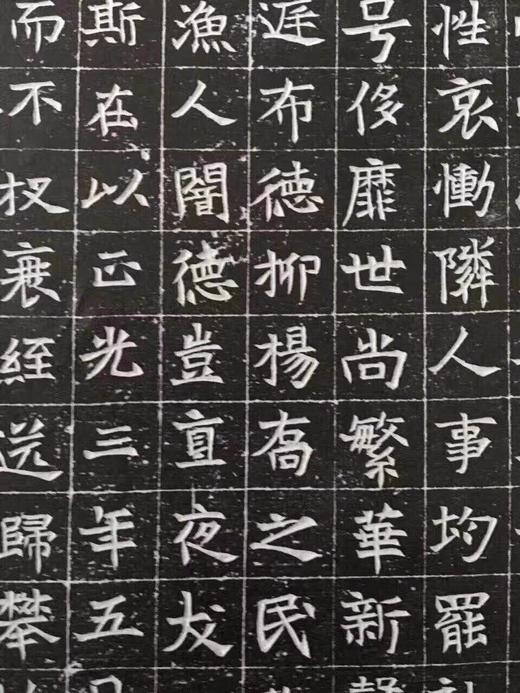 性哀慟隣人事均罷
号侈靡世尚繁華新
遅布德抑楊高之民
漁人闇德豈直夜犮
斯在以正光三年五
而不杖衰絰送歸攀